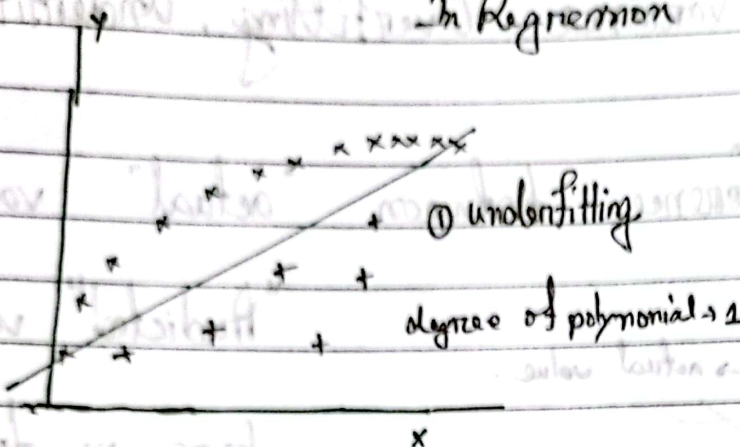 Y
In Regression
① underfitting
degree of polynomial → 1
X